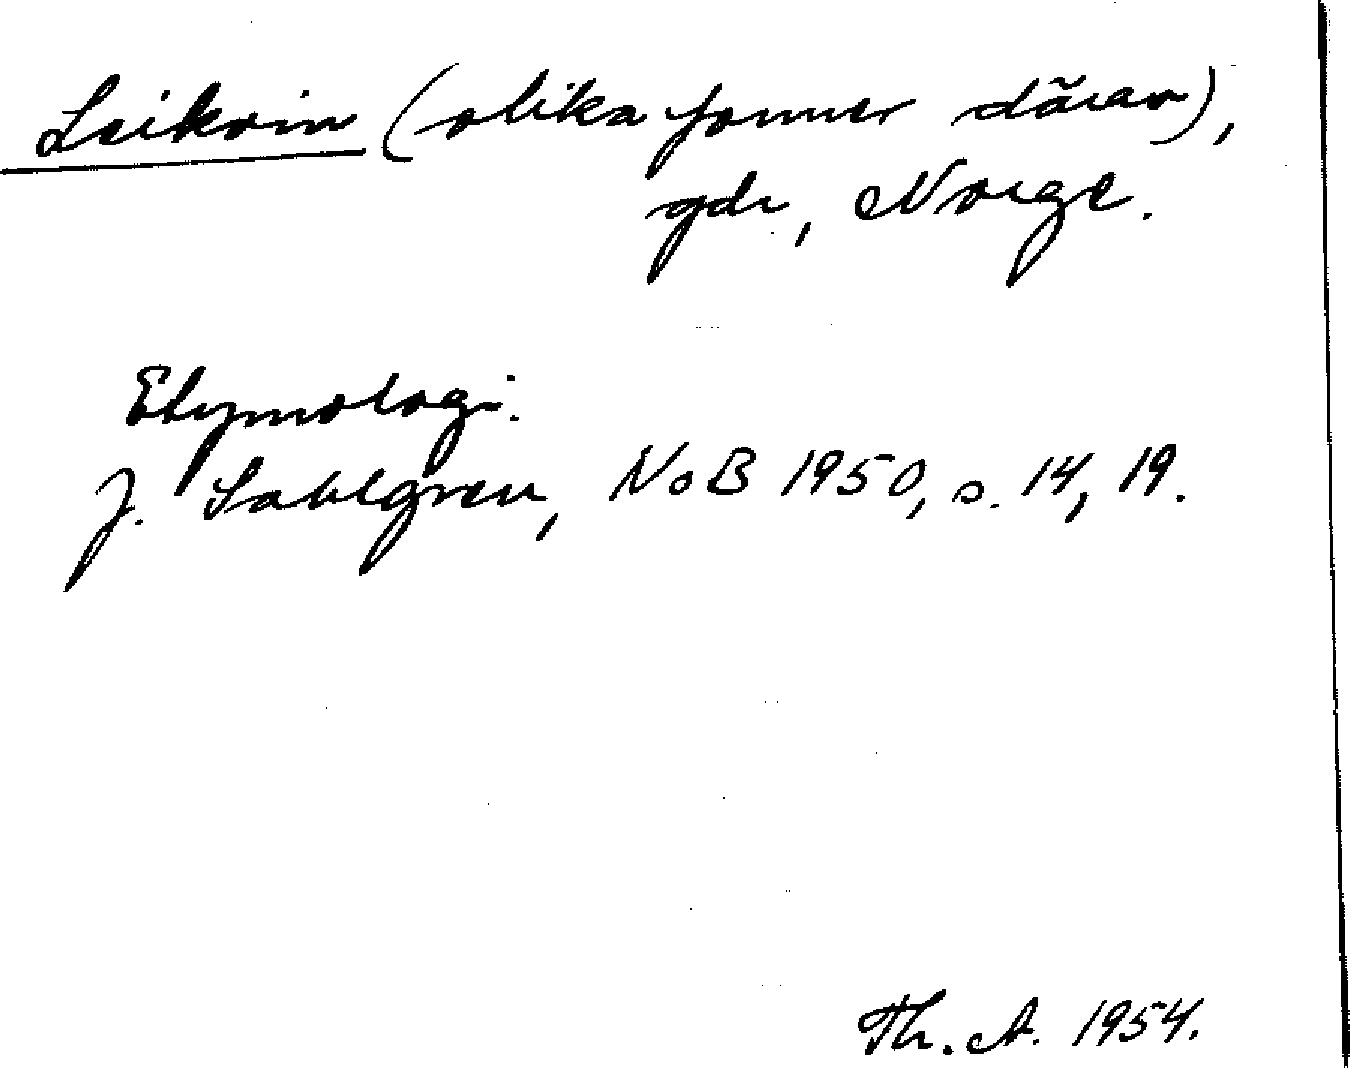 Leikvin (olika former därav),
gdr, Norge.
Etymologi.
J. Sahlgren, NoB 1950, s. 14, 19.
Th. A. 1954.